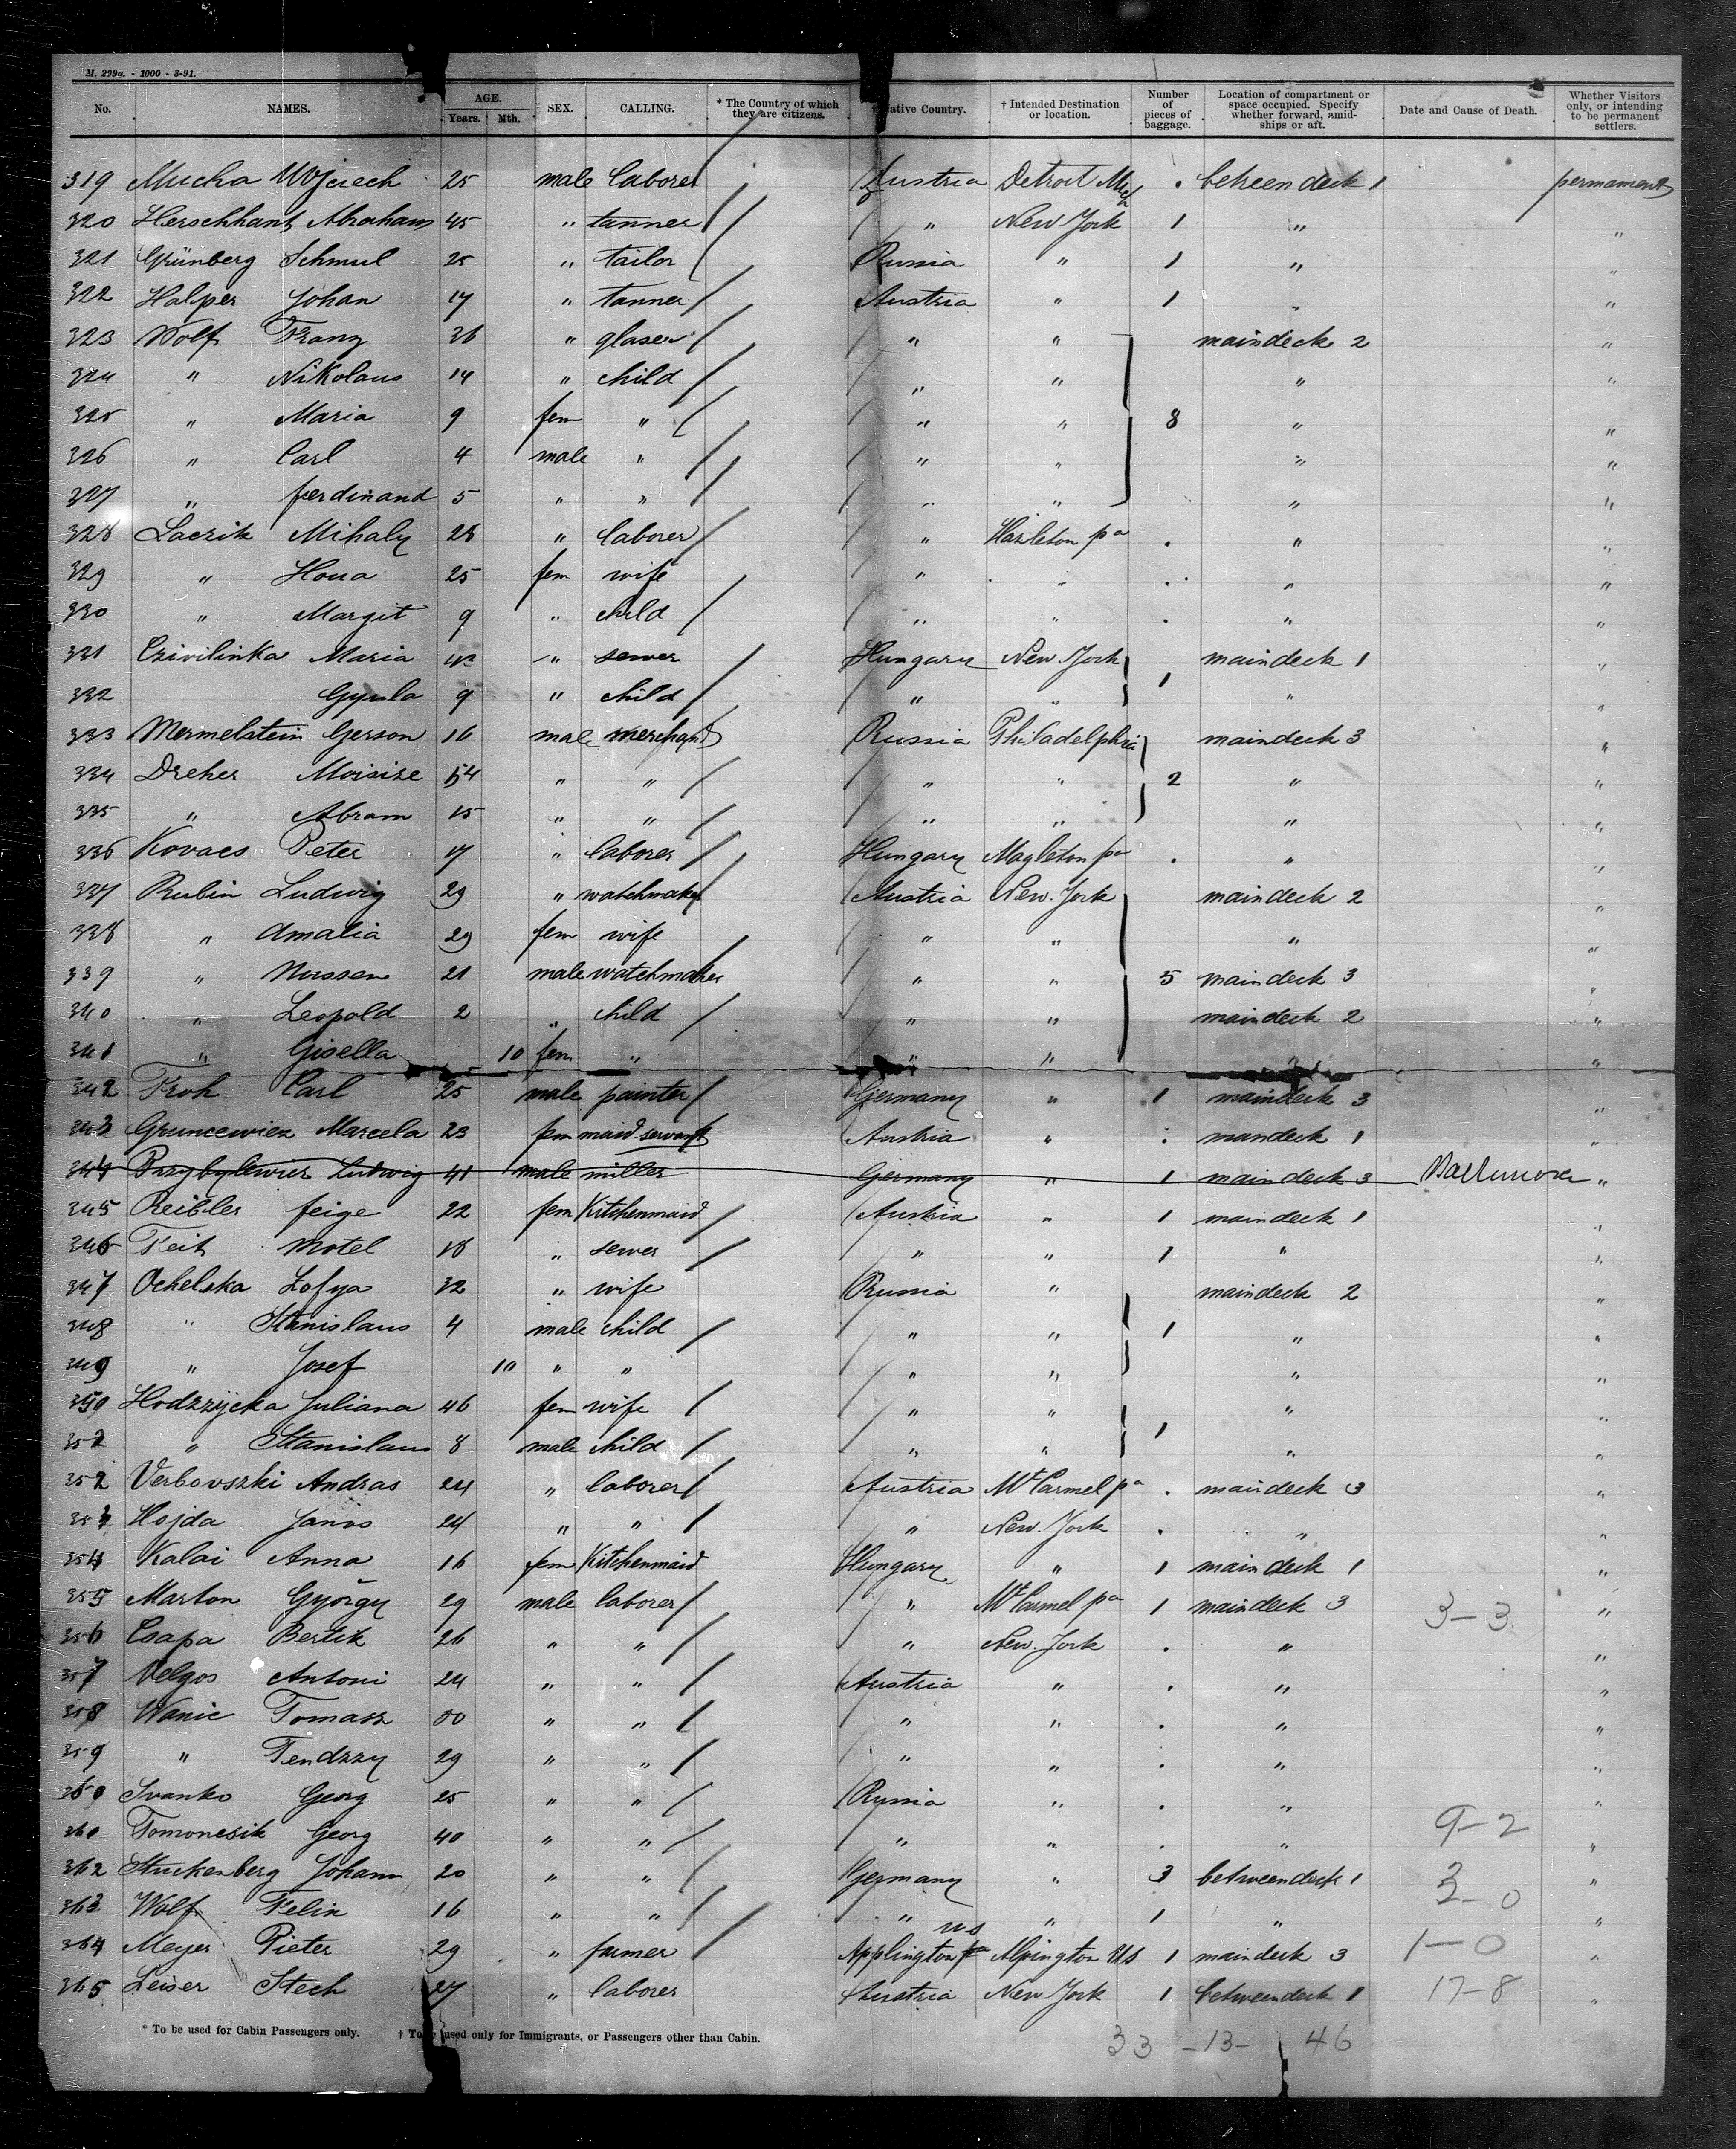 M. 299a. - 1000 - 3-91.
No. NAMES. AGE. Years. Mth. SEX. CALLING. * The Country of which they are citizens. Native Country. † Intended Destination or location. Number of pieces of baggage. Location of compartment or space occupied. Specify whether forward, amidships or aft. Date and Cause of Death. Whether Visitors only, or intending to be permanent settlers.
319 Mucha Wojciech 25 male laborer Austria Detroit . betreen deck 1 permament
320 Herschhant Abraham 45 " tanner " New York 1 " "
321 Grünberg Schmul 25 " tailor Russia " 1 " "
322 Halper Johan 17 " tanner Austria " 1 " "
323 Wolf Franz 36 " glaser " " maindeck 2 "
324 " Nikolaus 14 " child " " " "
325 " Maria 9 fem " " " 8 " "
326 " Carl 4 male " " " " "
327 " ferdinand 5 " " " " " "
328 Laczik Mihaly 28 " laborer " Hazleton pa . " "
329 " Ilona 25 fem wife " " . " "
330 " Margit 9 " child " " . " "
331 Czivilinka Maria 42 " sewer Hungary New York maindeck 1 "
332 Gyula 9 " child " " 1 " "
333 Mermelstein Gerson 16 male merchant Russia Philadelphia maindeck 3 "
334 Dreher Moisise 54 " " " " 2 " "
335 " Abram 15 " " " " " "
336 Kovacs Peter 17 " laborer Hungary Magleton pa . " "
337 Rubin Ludwig 29 " watchmaker Austria New York maindeck 2 "
338 " Amalia 29 fem wife " " " "
339 " Nussen 21 male watchmaker " " 5 maindeck 3 "
340 " Leopold 2 " child " " maindeck 2 "
341 " Gisella 10 fem " " " " "
342 Froh Carl 25 male painter Germany " 1 maindeck 3 "
343 Gruncewicz Marcela 23 fem maid servant Austria " . mandeck 1 "
344 Przybylewicz Ludwig 41 male miller Germany " 1 maindeck 3 "
345 Reibler feige 22 fem Kitchenmaid Austria " 1 maindeck 1 "
346 Feit Motel 18 " sewer " " 1 " "
347 Ochelska Zofya 32 " wife Russia " maindeck 2 "
348 " Stanislaus 4 male child " " 1 " "
349 " Josef 10 " " " " " "
350 Hodzzycka Juliana 46 fem wife " " " "
352 " Stanislaus 8 male child " " 1 " "
352 Verbovszki Andras 24 " laborer Austria Mt Carmel pa . maindeck 3 "
353 Hojda Janos 24 " " " New York . " "
354 Kalai Anna 16 fem Kitchenmaid Hungary " 1 maindeck 1 "
355 Marton György 29 male laborer " Mt Carmel pa 1 maindeck 3 3-3 "
356 Csapa Bertik 26 " " " New York . " "
357 Velgos Antoni 24 " " Austria " . " "
358 Wanic Tomasz " " " " . " "
359 " Fendzzy 29 " " " " . " "
360 Ivanko Georg 25 " " Russia " . " "
360 Tomonesik Georg 40 " " " " . " 9-2 "
362 Stuckenberg Johann 20 " " Germany " 3 betweendeck 1 3-0 "
363 Wolf Felix 16 " " " " 1 " "
us
364 Meyer Pieter 29 " farmer Applington Alpington US 1 maindeck 3 1-0 "
365 Leiser Stech 27 " laborer Austria New York 1 betweendeck 1 17-8 "
* To be used for Cabin Passengers only. † To be used only for Immigrants, or Passengers other than Cabin.
33 -13- 46